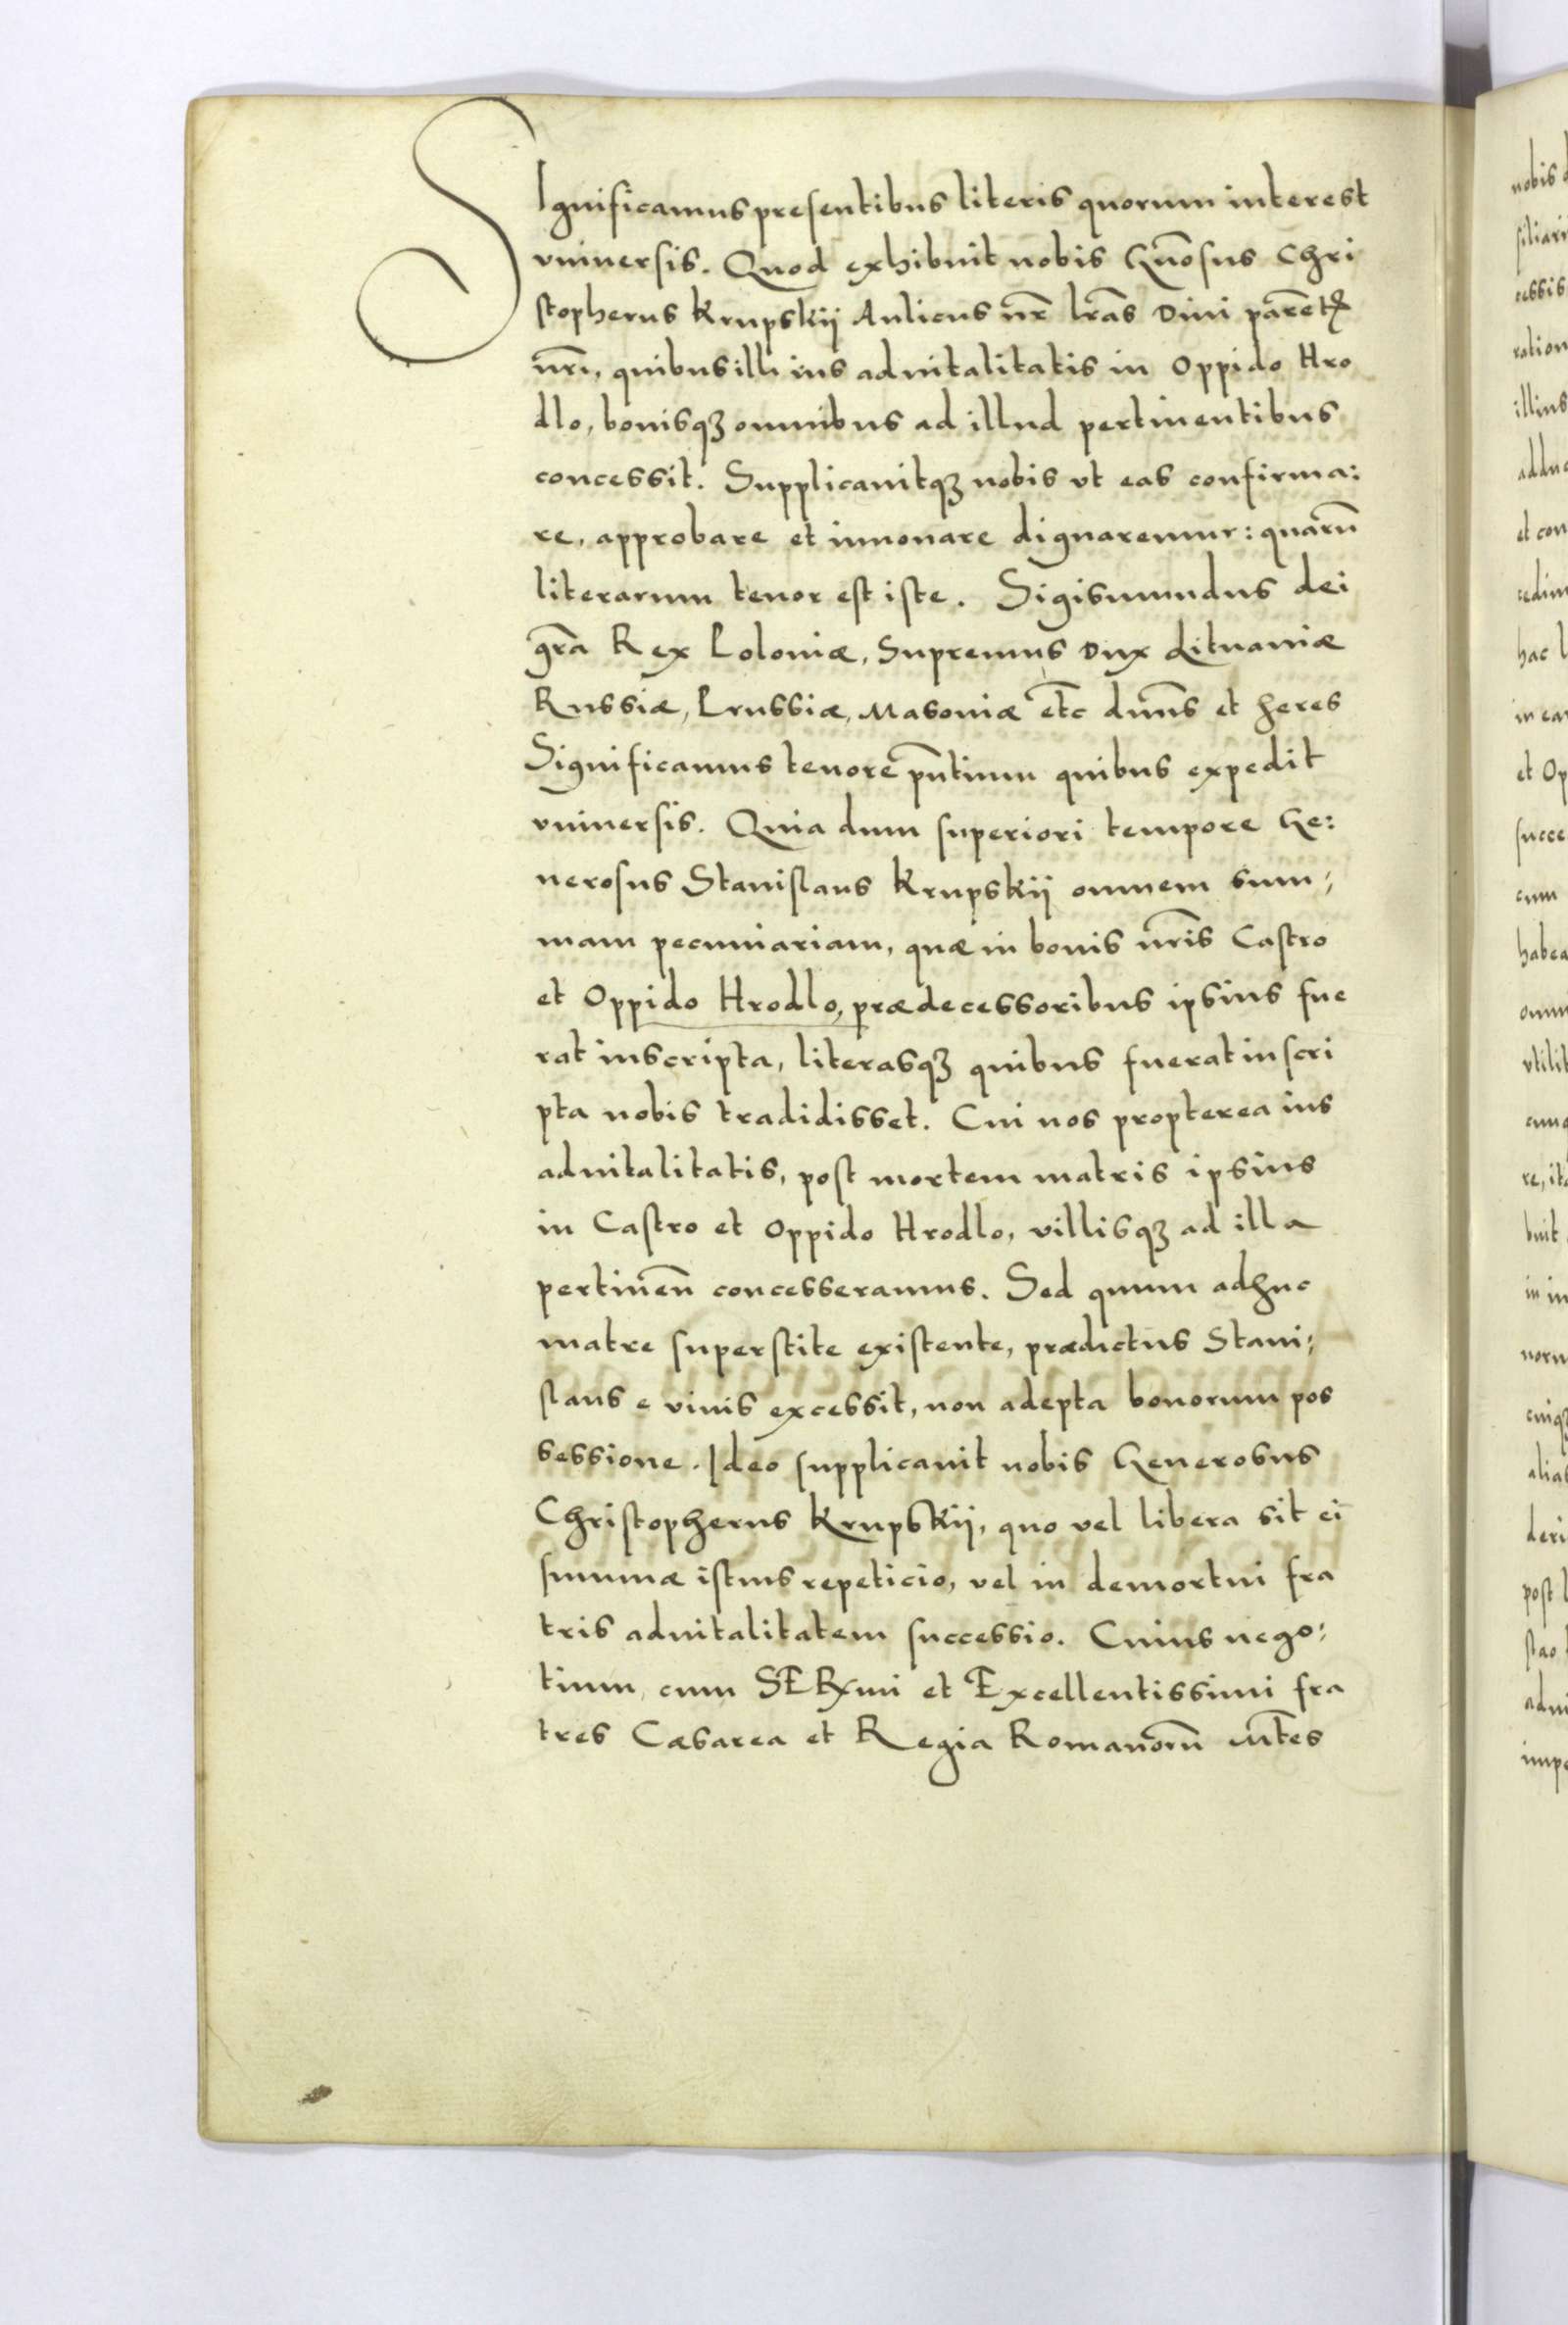 SIgnificamus presentibus literis quorum interest
vniuersis. Quod exhibuit nobis Gn̄osus Chri
stopherus Krupskij Aulicus nr̄ lr̄as Diui parentꝭ
nr̄i, quibus illi ius aduitalitatis in Oppido Hro
dlo, bonisqꝫ omnibus ad illud pertinentibus
concessit. Supplicauitqꝫ nobis vt eas confirma:
re, approbare et innouare dignaremur: quarū
literarum tenor est iste. Sigismundus dei
gr̄a Rex Poloniæ, Supremus Dux Lituaniæ
Russiæ, Prussiæ, Masouiæ etc̄ dnn̄s et heres
Significamus tenore pn̄tium quibus expedit
vniuersis. Quia dum superiori tempore Ge:
nerosus Stanislaus Krupskij omnem sum:
mam pecuniariam, quæ in bonis nr̄is Castro
et Oppido Hrodlo, prædecessoribus ipsius fue
rat inscripta, literasqꝫ quibus fuerat inscri
pta nobis tradidisset. Cui nos propterea ius
aduitalitatis, post mortem matris ipsius
in Castro et Oppido Hrodlo, villisqꝫ ad illa
pertinen̄ concesseramus. Sed quum adhuc
matre superstite existente, prædictus Stani:
slaus e viuis excessit, non adepta bonorum pos
sessione. Ideo supplicauit nobis Generosus
Christopherus Krupskij, quo vel libera sit ei
summæ istius repeticio, vel in demortui fra
tris aduitalitatem successio. Cuius nego:
tium, cum SERxmi et Excellentissimi fra
tres Cæsarea et Regia Romanorū Mt̄es